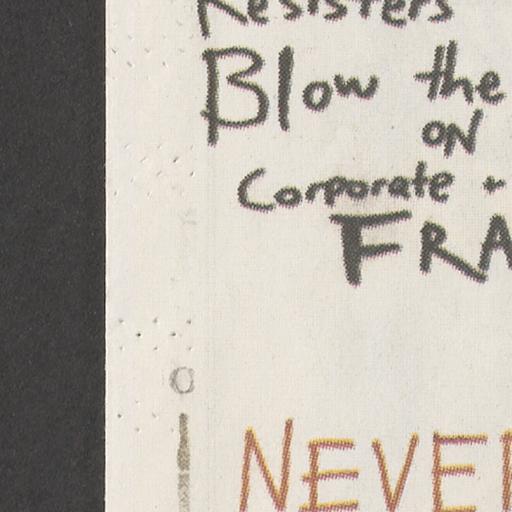 Resisters
Blow the
ON
Corporate +
FRA
NEVER